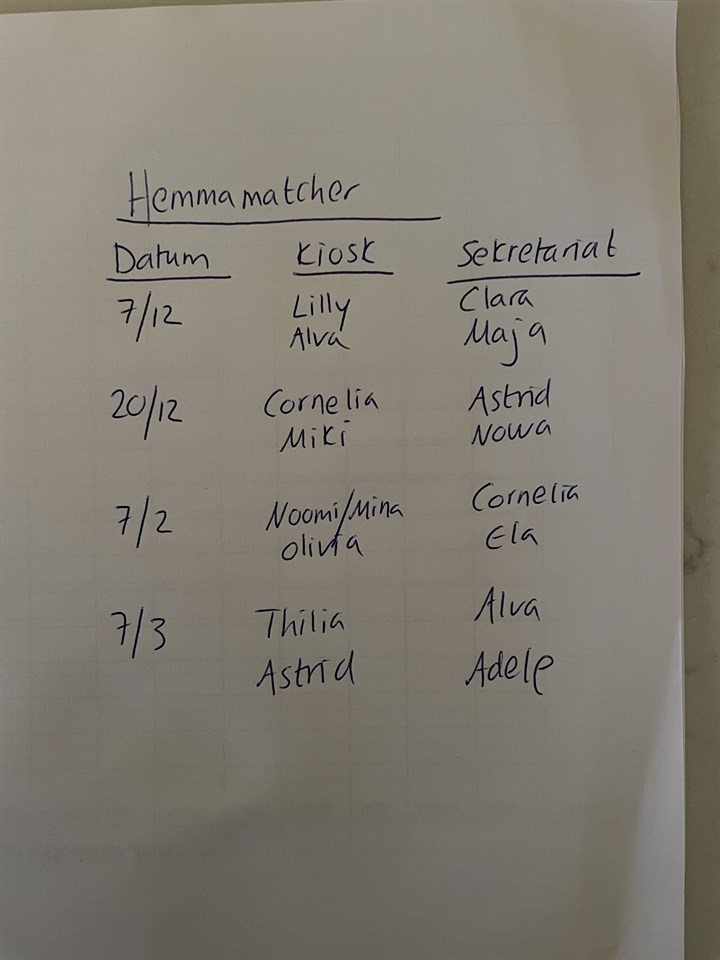 Hemmamatcher
Datum Kiosk Sekretariat
7/12 Lilly Clara
Alva Maja
20/12 Cornelia Astrid
Miki Nowa
7/2 Noomi/Mina Cornelia
Olivia Ela
7/3 Thilia Alva
Astrid Adele